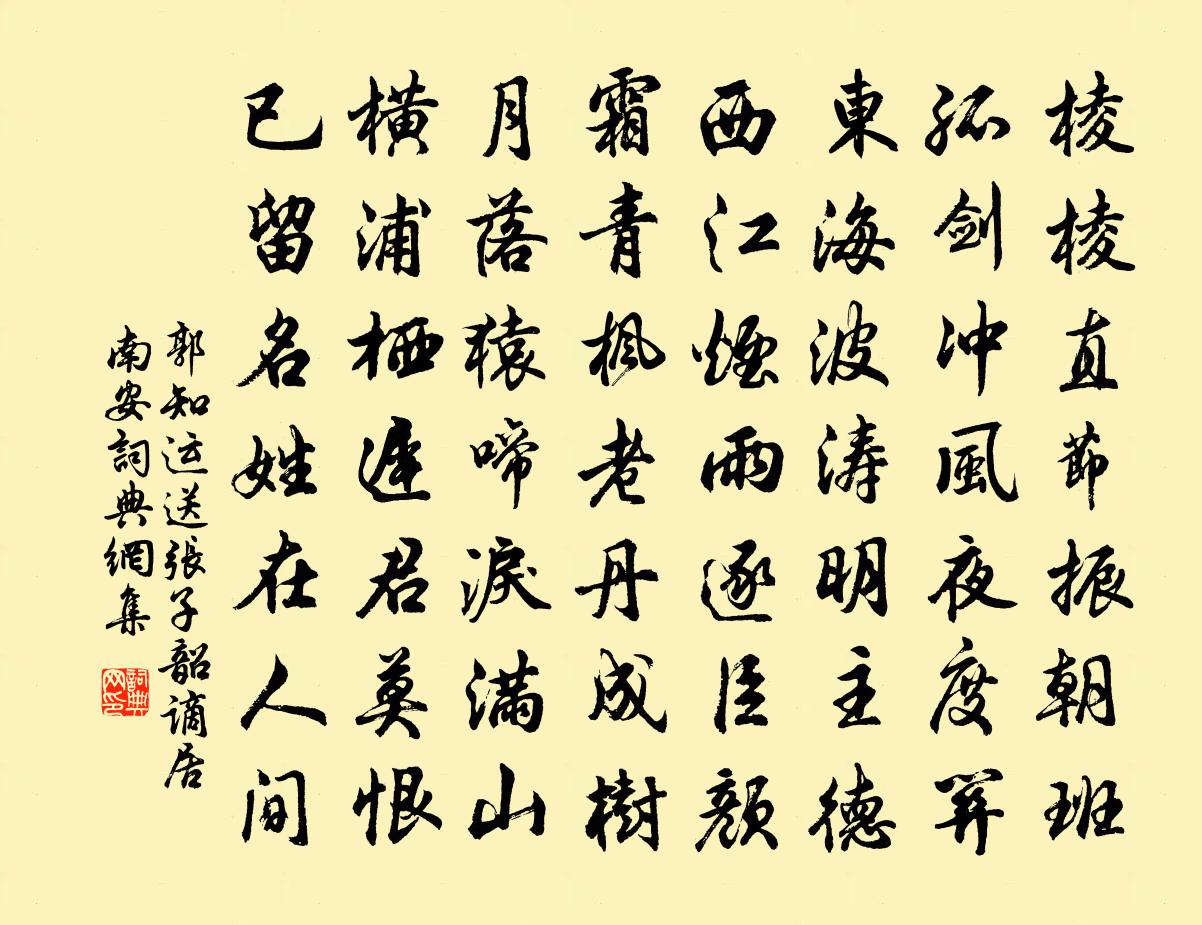 棱棱直節振朝班
孤剑冲風夜度関
東海波涛明主德
西江煙雨逐臣顏
霜青枫老丹成樹
月落猿啼淚满山
横浦栖遲君莫恨
已留名姓在人间
郭知运送張子韶谪居
南安詞典網集
詞典网印